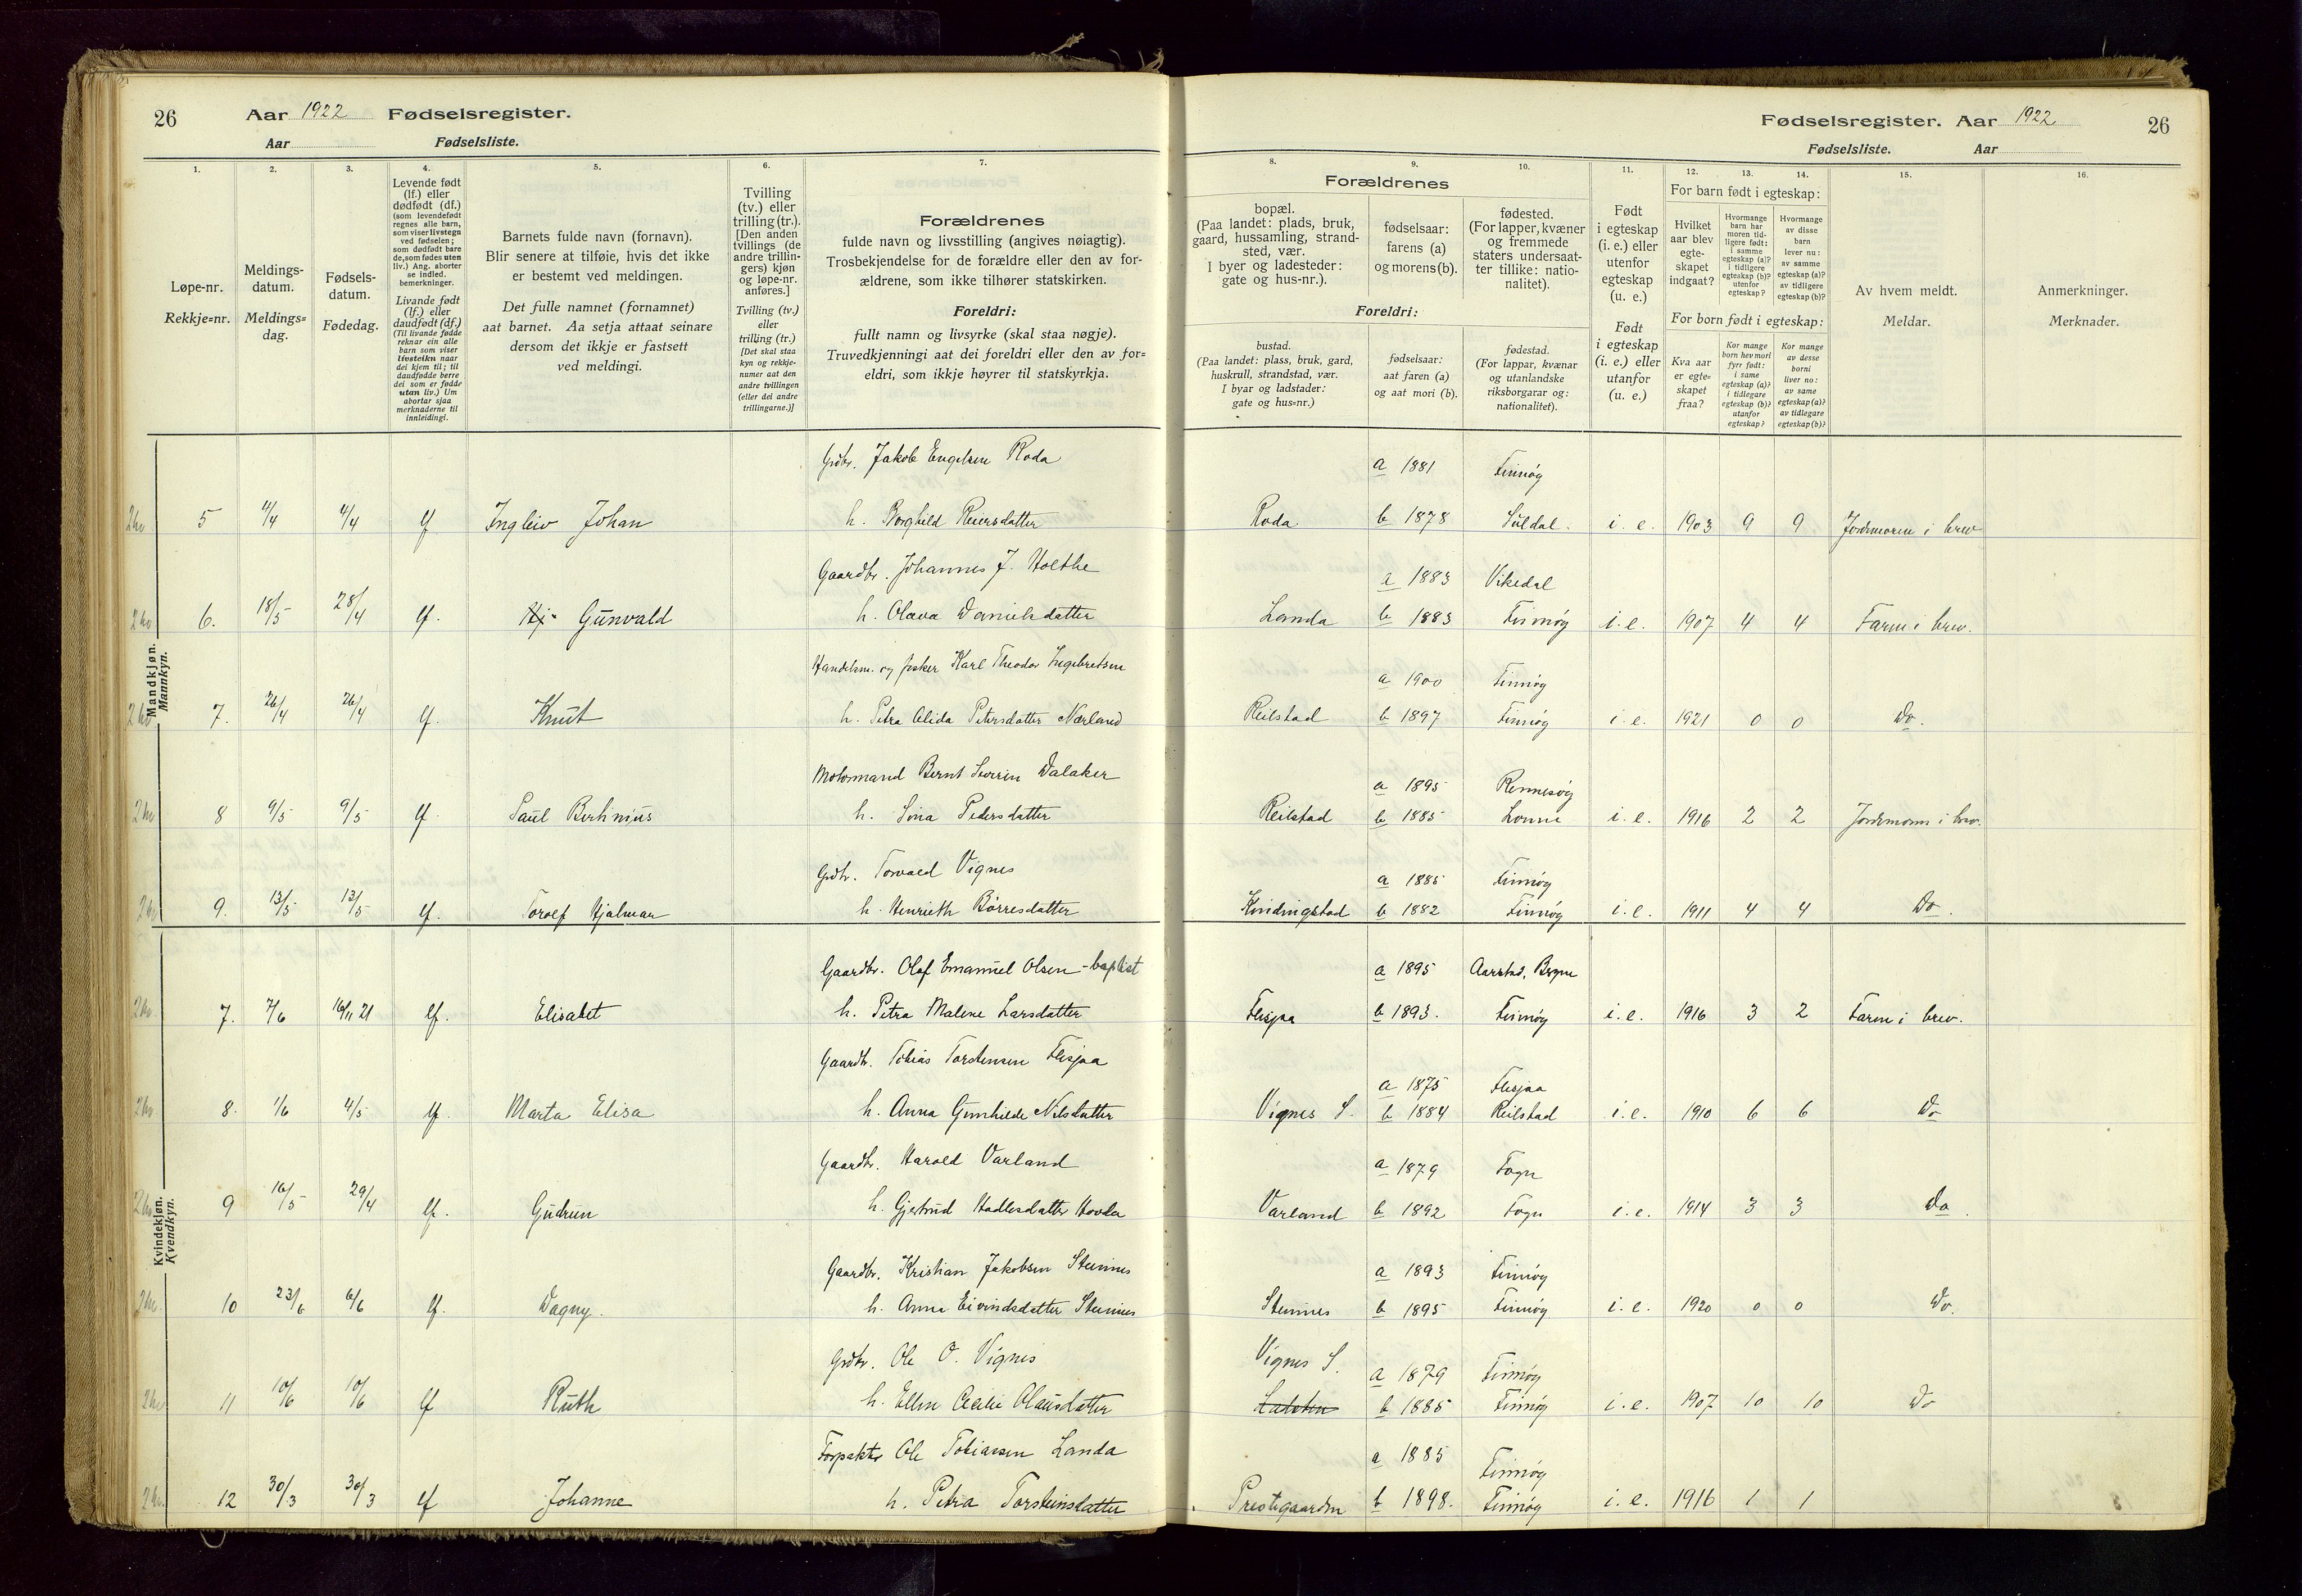 26 Aar 1922 Fødselsregister.
Aar Fødselsliste.
Fødselsregister. Aar 1922 26
Fødselsliste. Aar
1.
Løpe-nr.
Rekkje=nr.
2.
Meldings-
datum.
Meldings=
dag.
3.
Fødsels-
datum.
Fødedag.
4.
Levende født
(lf.) eller
dødfødt (df.)
(som levendefødt
regnes alle barn,
som viser livstegn
ved fødselen;
som dødfødt bare
de, som fødes uten
liv.) Ang. aborter
se indled.
bemerkninger.
Livande født
(lf.) eller
daudfødt (df.)
(Til livande fødde
reknar ein alle
barn som viser
livsteikn naar
dei kjem til; til
daudfødde berre
dei som er fødde
utan liv.) Um
abortar sjaa
merknaderne til
innleidingi.
5.
Barnets fulde navn (fornavn).
Blir senere at tilføie, hvis det ikke
er bestemt ved meldingen.
Det fulle namnet (fornamnet)
aat barnet. Aa setja attaat seinare
dersom det ikkje er fastsett
ved meldingi.
6.
Tvilling
(tv.) eller
trilling (tr.).
[Den anden
tvillings (de
andre trillin-
gers) kjøn
og løpe-nr.
anføres.]
Tvilling (tv.)
eller
trilling (tr.)
[Det skal staa
kyn og rekkje-
numer aat den
andre tvillingen
(eller dei andre
trillingarne.)]
7.
Forældrenes
fulde navn og livsstilling (angives nøiagtig).
Trosbekjendelse for de forældre eller den av for-
ældrene, som ikke tilhører statskirken.
Foreldri:
fullt namn og livsyrke (skal staa nøgje).
Truvedkjenningi aat dei foreldri eller den av for=
eldri, som ikkje høyrer til statskyrkja.
Forældrenes
8.
bopæl.
(Paa landet: plads, bruk,
gaard, hussamling, strand-
sted, vær.
I byer og ladesteder:
gate og hus-nr.).
9.
fødselsaar:
farens (a)
og morens (b).
10.
fødested.
(For lapper, kvæner
og fremmede
staters undersaat-
ter tillike: natio-
nalitet).
Foreldri:
bustad.
(Paa landet: plass, bruk, gard,
huskrull, strandstad, vær.
I byar og ladstader:
gate og hus=nr.)
fødselsaar:
aat faren (a)
og aat mori (b).
fødestad.
(For lappar, kvænar
og utanlandske
riksborgarar og:
nationalitet).
11.
Født
i egteskap
(i. e.) eller
utenfor
egteskap
(u. e.)
Født
i egteskap
(i. e.) eller
utanfor
(u. e.)
12. 13. 14.
For barn født i egteskap:
Hvilket
aar blev
egte-
skapet
indgaat?
Hvormange
barn har
moren tid-
ligere født:
i samme
egteskap (a)?
i tidligere
egteskap (b)?
utenfor
egteskap?
Hvormange
av disse
barn
lever nu:
av samme
egteskap (a)?
av tidligere
egteskap (b)?
For born født i egteskap:
Kva aar
er egte=
skapet
fraa?
Kor mange
born hev mori
fyrr født:
i same
egteskap (a)?
i tidlegare
egteskap (b)?
utanfor
egteskap?
Kor mange
av desse
borni
liver no:
av same
egteskap (a)?
av tidlegare
egteskap (b)?
15.
Av hvem meldt.
Meldar.
16.
Anmerkninger.
Merknader.
Mandkjøn.
Mannkyn.
Grdbr. Jakob Engelsen Roda a 1881 Finnøy
5 4/4 4/4 lf Ingleiv Johan h. Borghild Reiersdatter Roda b 1878 Suldal. i. e. 1903 9 9 Jordmoren i brev
Gaardbr. Johannes J. Holthe a 1883 Vikedal
6. 18/5 28/4 lf. Gunvald h. Olava Danielsdatter Landa b 1883 Finnøy i. e. 1907 4 4 Faren i brev.
Handelsm. og fisker Karl Theodor Ingebretsen a 1900 Finnøy
7. 26/4 26/4 lf. Knut h. Petra Alida Petersdatter Nærland Reilstad b 1897 Finnøy i. e. 1921 0 0 Do.
Motormand Bernt Severin Dalaker a 1895 Rennesøy
8 9/5 9/5 lf. Paul Berthinius h. Sina Pedersdatter Reilstad b 1885 i. e. 1916 2 2 Jordmoren i brev.
Grdbr. Torvald Vignes a 1885 Finnøy
9. 13/5 13/5 lf. Torolf Hjalmar h. Henriette Børresdatter Kindingstad b 1882 Finnøy i. e. 1911 4 4 Do.
Kvindekjøn.
Kvendkyn.
Gaardbr. Olaf Emanuel Olsen - baptist a 1895 Aarstad, Bryne
7. 7/6 16/11 21 lf. Elisabet h. Petra Malene Larsdatter Flesjaa b 1893. Finnøy i. e. 1916 3 2 Faren i brev.
Gaardbr. Tobias Torstensen Flesjaa a 1875 Flesjaa
8. 1/6 4/5 lf. Marta Elisa h. Anna Gunhilde Nilsdatter Vignes S. b 1884 Reilstad i. e. 1910 6 6 Do
Gaardbr. Harald Varland a 1879 Fogn
9 16/5 29/4 lf. Gudrun h. Gjertrud Hadlesdatter Hovda Varland b 1892 Fogn i. e. 1914 3 3 Do.
Gaardbr. Kristian Jakobsen Steinnes a 1893 Finnøy
10 23/6 6/6 lf. Dagny. h. Anna Eivindsdatter Steinnes Steinnes b 1895 Finnøy i. e. 1920 0 0 Do.
Grdbr. Ole O. Vignes Vignes S. a 1879 Finnøy
11 10/6 10/6 lf Ruth h. Ellen Cecilie Olausdatter b 1885 Finnøy i. e. 1907 10 10 Do
Forpakter Ole Tobiassen Landa a 1885 Finnøy
12 30/3 30/3 lf Johanne h. Petra Torsteinsdatter Prestegaarden b 1898. Finnøy i. e. 1916 1 1